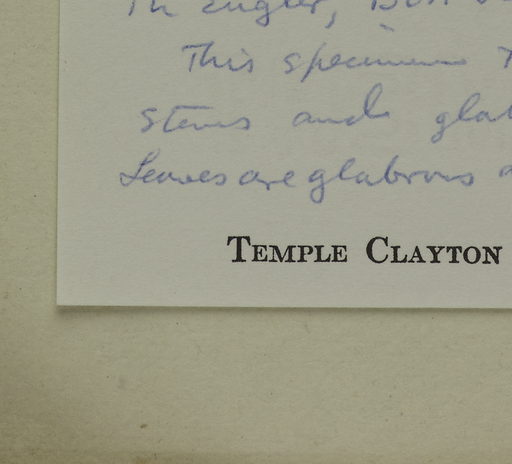 in Engler, Bot
This specimen
stems and glab
Leaves are glabrous
TEMPLE CLAYTON